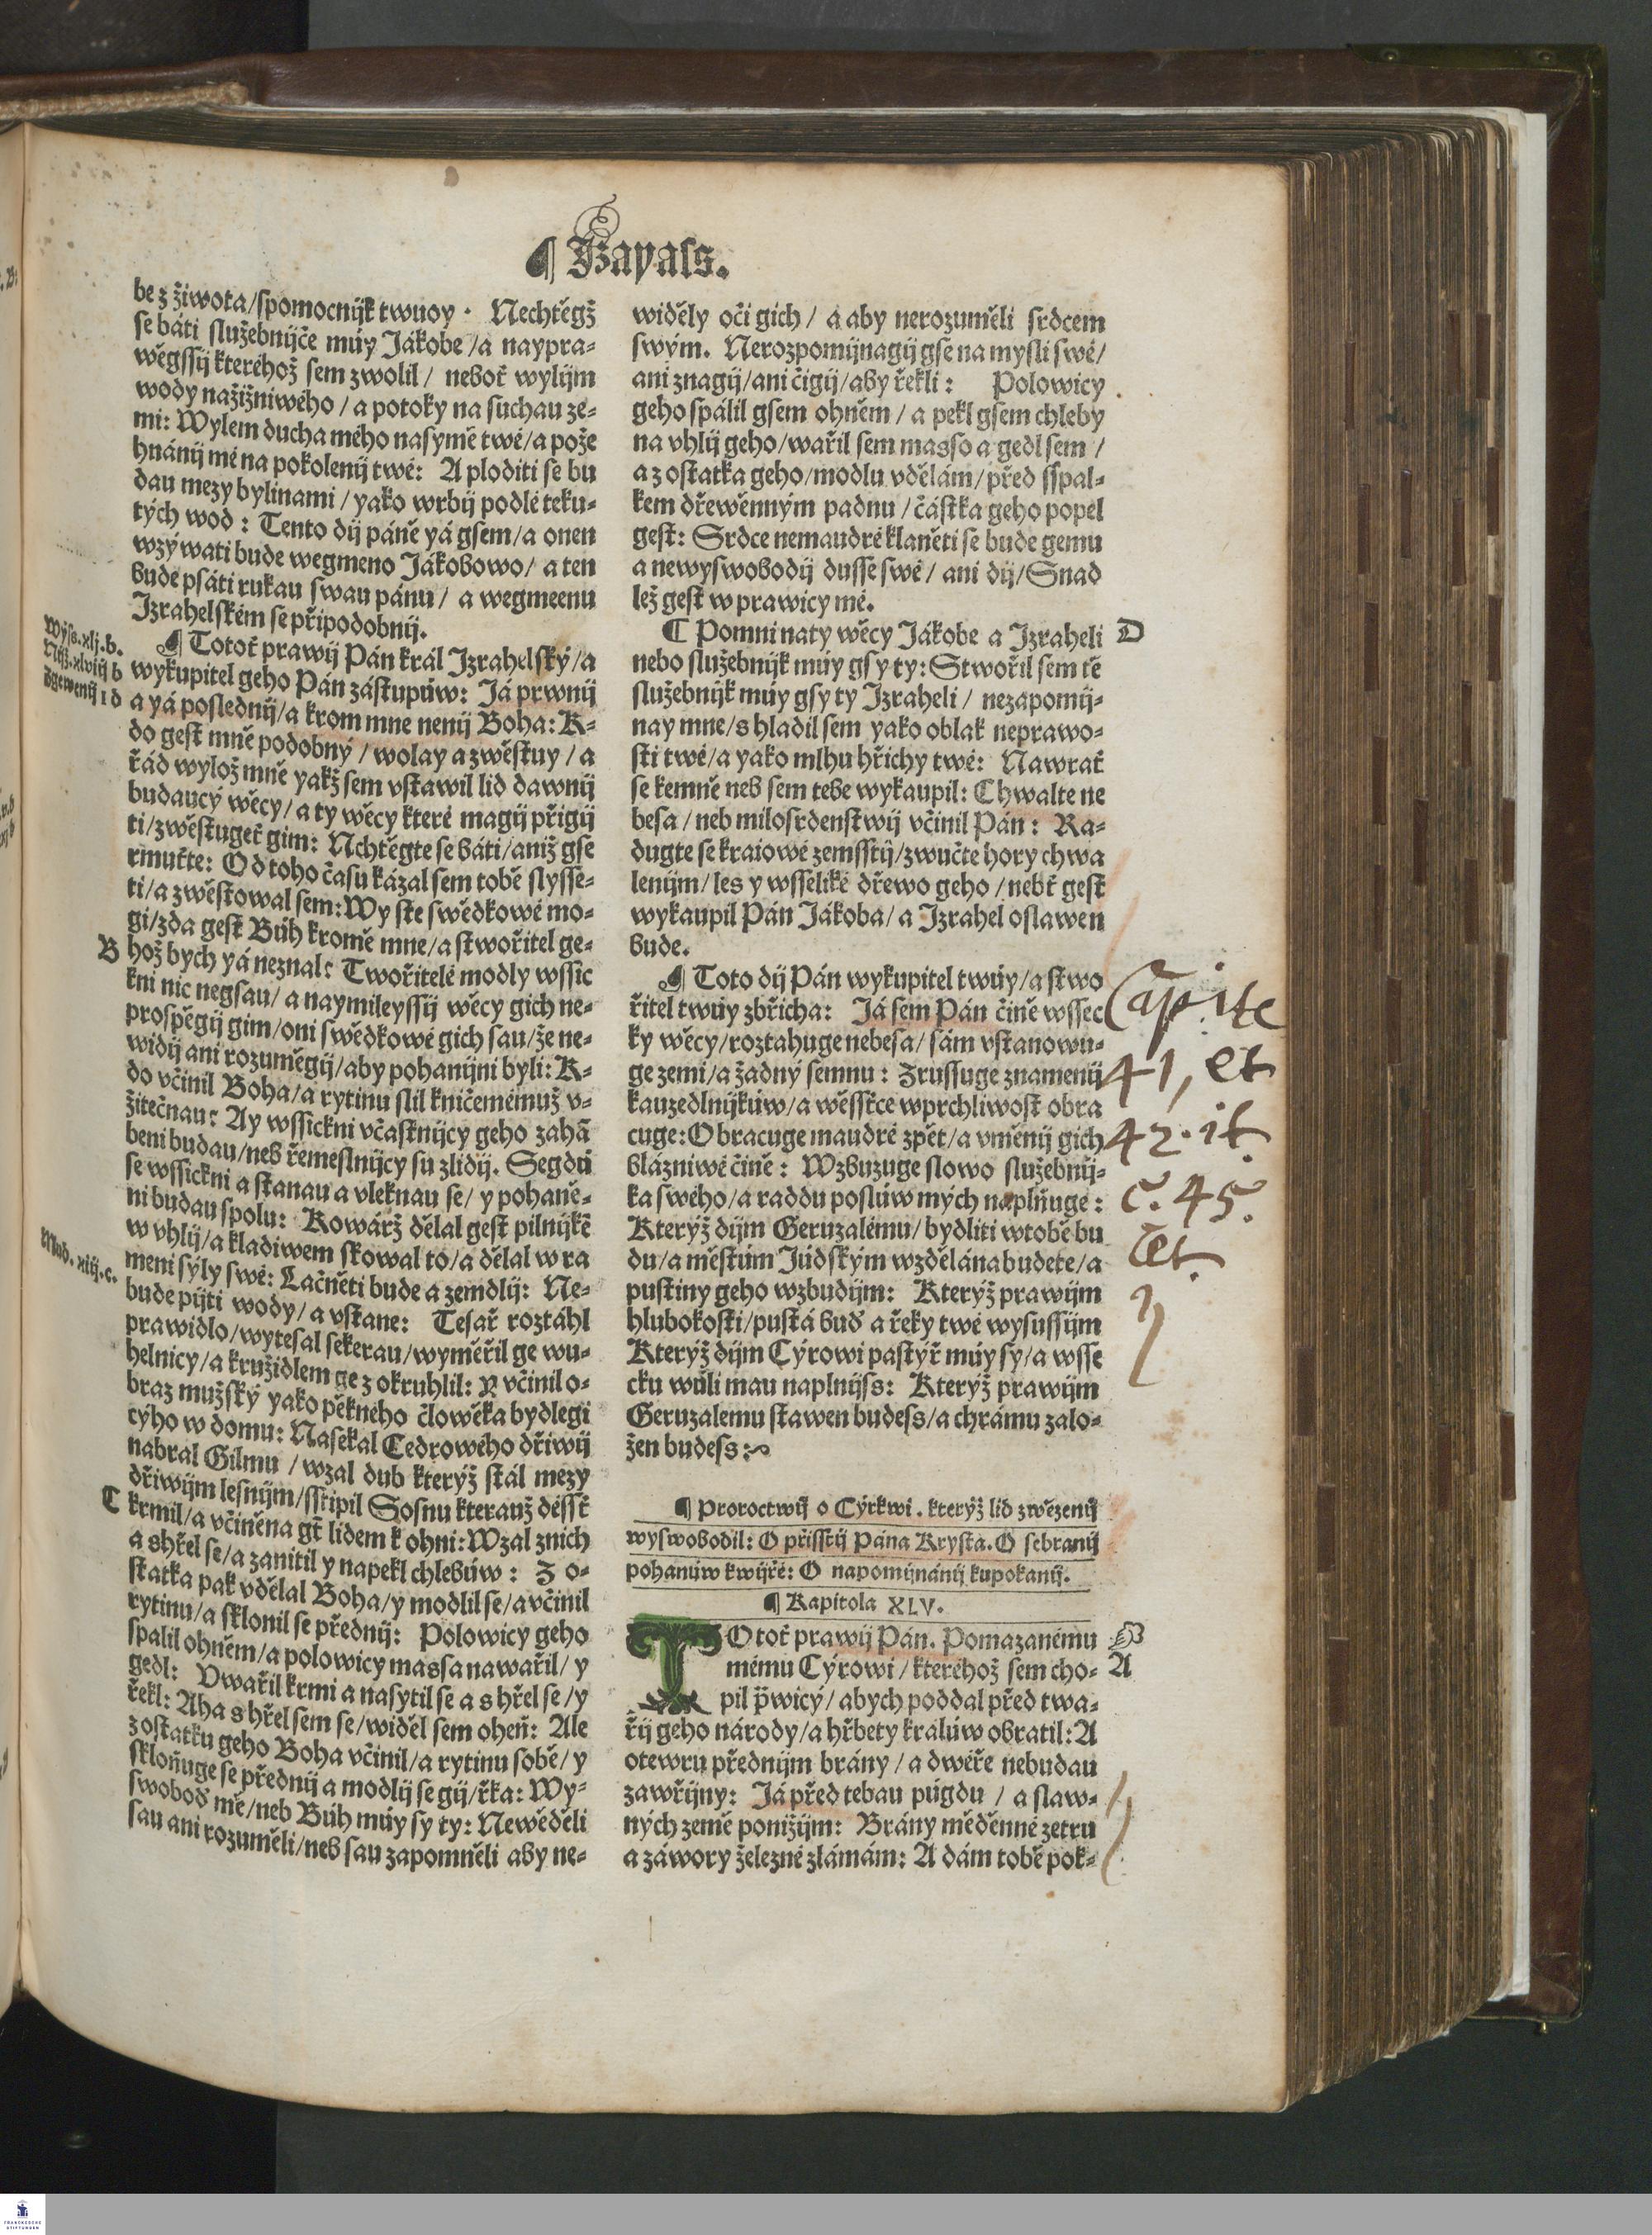 ¶ Izayass.
be z žiwota/spomocnijk twuoy · Nechtěgž
se báti služebnijče múy Jákobe/a naypra-
wěgssij kteréhož sem zwolil/ neboť wylijm
wody nažižniwého/a potoky na suchau ze-
mi: Wylem ducha mého nasymě twé/a pože
hnánij mé na pokolenij twé: A ploditi se bu
dau mezy bylinami/yako wrbij podlé teku-
tých wod: Tento dij páně yá gsem/a onen
wzýwati bude wegmeno Jákobowo/ a ten
bude psáti rukau swau pánu/ a wegmeenu
Izrahelském se připodobnij.
Wýss.xlj.b.
Nijž.xlviij b
Zgewenij i d
¶ Totoť prawij Pán král Izrahelský/a
wykupitel geho Pán zástupúw: Já prwnij
a yá poslednij/a krom mne nenij Boha: K-
do gest mně podobný/wolay a zwěstuy/a
řád wylož mně yakž sem vstawil lid dawnij
budaucý wěcy/a ty wěcy které magij přigij
ti/zwěstugeť gim: Nchtěgte se báti/aniž gse
rmuťte: Od toho času kázal sem tobě slysse-
ti/a zwěstowal sem: Wy ste swědkowé mo-
gi/zda gest Búh kromě mne/a stwořitel ge-
B
hož bych yá neznal: Twořitelé modly wssic
kni nic negsau/a naymileyssij wěcy gich ne-
prospěgij gim/oni swědkowé gich sau/že ne-
widij ani rozumějij/aby pohanijni byli: K-
do včinil Boha/a rytinu slil kničemémuž v-
žitečnau: Ay wssickni včastnijcy geho zahã
beni budau/neb řemeslnijcy su zlidij. Segdú
se wssickni a stanau a vleknau se/ y pohaně-
ni budau spolu: Kowárž dělal gest pilnijkě
w vhlij/a kladiwem skowal to/a dělal w ra
Mad. xiij.c.
meni sýly swé: Lačněti bude a zemdlij: Ne-
bude pijti wody/a vstane: Tesař roztáhl
prawidlo/wytesal sekerau/wyměřil ge wu-
helnicy/a kružidlem ge z okruhlil: Y včinil o-
braz mužský yako pěkného člowěka bydlegi
cýho w domu: Nasekal Cedrowého dřiwij
nabral Gilmu/wzal dub kterýž stál mezy
dřiwijm lesnijm/sstipil Sosnu kterauž désst
C
krmil/a včiněna gt̃ lidem k ohni: Wzal znich
a shřel se/a zanitil y napekl chlebúw: Z o-
statka pak vdělal Boha/y modlil se/a včinil
rytinu/a sklonil se přednij: Polowicy geho
spalil ohněm/a polowicy massa nawařil/ y
gedl: Vwařil krmi a nasytil se a s hřel se/y
řekl: Aha s hřel sem se/widěl sem oheň: Ale
z ostatku geho Boha včinil/a rytinu sobě/y
skloňuge se přednij a modlij se gij/řka: Wy-
swoboď mě/neb Búh múy sy ty: Newěděli
sau ani rozuměli/neb sau zapomněli aby ne-
widěly oči gich/ á aby nerozuměli srdcem
swým. Nerozpomijnagij gse na mysli swé/
ani znagij/ani čigij/aby řekli: Polowicy
geho spálil gsem ohněm/a pekl gsem chleby
na vhlij geho/wařil sem masso a gedl sem/
a z ostatka geho/modlu vdělám/před sspal-
kem dřewěnným padnu/částka geho popel
gest: Srdce nemaudré klaněti se bude gemu
a newyswobodij dusse swé/ ani dij/Snad
lež gest w prawicy mé.
¶ Pomni naty wěcy Jákobe a Izraheli
D
nebo služebnijk múy gsy ty: Stwořil sem tě
služebnijk múy gsy ty Izraheli/ nezapomij-
nay mne/s hladil sem yako oblak neprawo-
sti twé/a yako mlhu hřichy twé: Nawrať
se kemně neb sem tebe wykaupil: Chwalte ne
besa/neb milosrdenstwij včinil Pán: Ra-
dugte se kraiowé zemsstij/zwučte hory chwa
lenijm/les y wsseliké dřewo geho/nebť gest
wykaupil Pán Jákoba/a Izrahel oslawen
bude.
¶ Toto dij Pán wykupitel twúy/a stwo
řitel twúy zbřicha: Já sem Pán čině wssec
ky wěcy/roztahuge nebesa/sám vstanowu-
ge zemi/a žadný semnu: Zrussuge znamenij
kauzedlnijkúw/a wěsstce wprchliwost obra
cuge: Obracuge maudré zpět/a vměnij gich
blázniwé čině: Wzbuzuge slowo služebnij-
ka swého/a raddu poslúw mých naplňuge:
Kterýž dijm Geruzalému/bydliti wtobě bu
du/a městúm Júdským wzdělána budete/a
pustiny geho wzbudijm: Kterýž prawijm
hlubokosti/pustá buď a řeky twé wysussijm
Kterýž dijm Cýrowi pastýř múy sy/a wsse
cku wúli mau naplnijss: Kterýž prawijm
Geruzalemu stawen budess/a chrámu zalo-
žen budess:
Capite
41, et
42. it.
c. 45.
et.
¶ Proroctwij o Cýrkwi. kterýž lid zwězenij
wyswobodil: O přisstij Pána Krysta. O sebranij
pohanúw kwijře: O napomijnánij kupokanij.
¶ Kapitola XLV.
TOtoť prawij Pán. Pomazanému
A
mému Cýrowi/kteréhož sem cho-
pil p̃wicý/abych poddal před twa-
řij geho národy/a hřbety králúw obratil: A
otewru přednijm brány/a dwéře nebudau
zawřijny: Já před tebau púgdu/a slaw-
ných země ponižijm: Brány měděnné zetru
a záwory železné zlámám: A dám tobě pok-
FRANCKESCHE
STIFTUNGEN